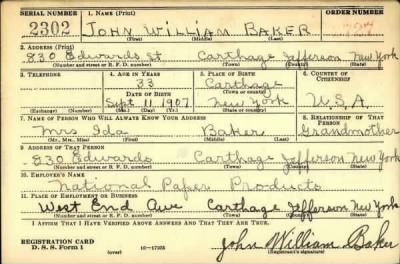 SERIAL NUMBER 1. NAME (Print) ORDER NUMBER
2302 JOHN WILLIAM BAKER
(First) (Middle) (Last)
2. ADDRESS (Print)
830 Edwards St Carthage Jefferson New York
(Number and street or R. F. D. number) (Town) (County) (State)
3. TELEPHONE 4. AGE IN YEARS 5. PLACE OF BIRTH 6. COUNTRY OF CITIZENSHIP
33 Carthage
DATE OF BIRTH (Town or county)
Sept 11 1907 New York U.S.A.
(Exchange) (Number) (Mo.) (Day) (Yr.) (State or country)
7. NAME OF PERSON WHO WILL ALWAYS KNOW YOUR ADDRESS 8. RELATIONSHIP OF THAT PERSON
Mrs Ida Baker Grandmother
(Mr., Mrs., Miss) (First) (Middle) (Last)
9. ADDRESS OF THAT PERSON
830 Edwards Carthage Jefferson New York
(Number and street or R. F. D. number) (Town) (County) (State)
10. EMPLOYER'S NAME
National Paper Products
11. PLACE OF EMPLOYMENT OR BUSINESS
West End Ave Carthage Jefferson New York
(Number and street or R. F. D. number) (Town) (County) (State)
I AFFIRM THAT I HAVE VERIFIED ABOVE ANSWERS AND THAT THEY ARE TRUE.
REGISTRATION CARD
D. S. S. Form 1 (over) 16—17105 John William Baker
(Registrant's signature)